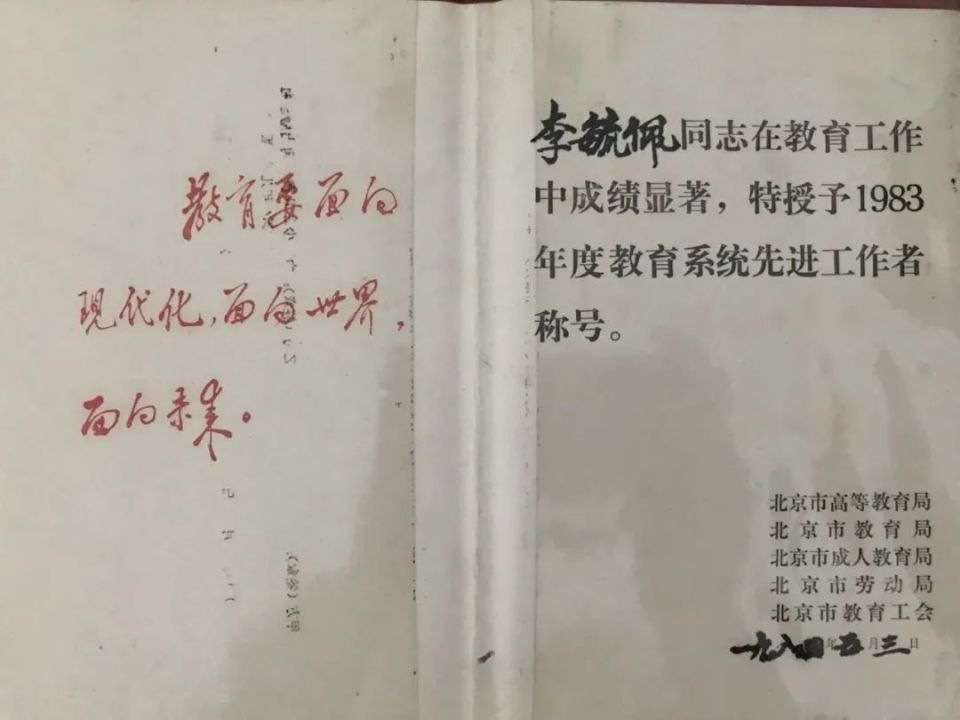 教育要面向
现代化,面向世界,
面向未来。
李毓佩同志在教育工作
中成绩显著，特授予1983
年度教育系统先进工作者
称号。
北京市高等教育局
北京市教育局
北京市成人教育局
北京市劳动局
北京市教育工会
一九八四年五月三日